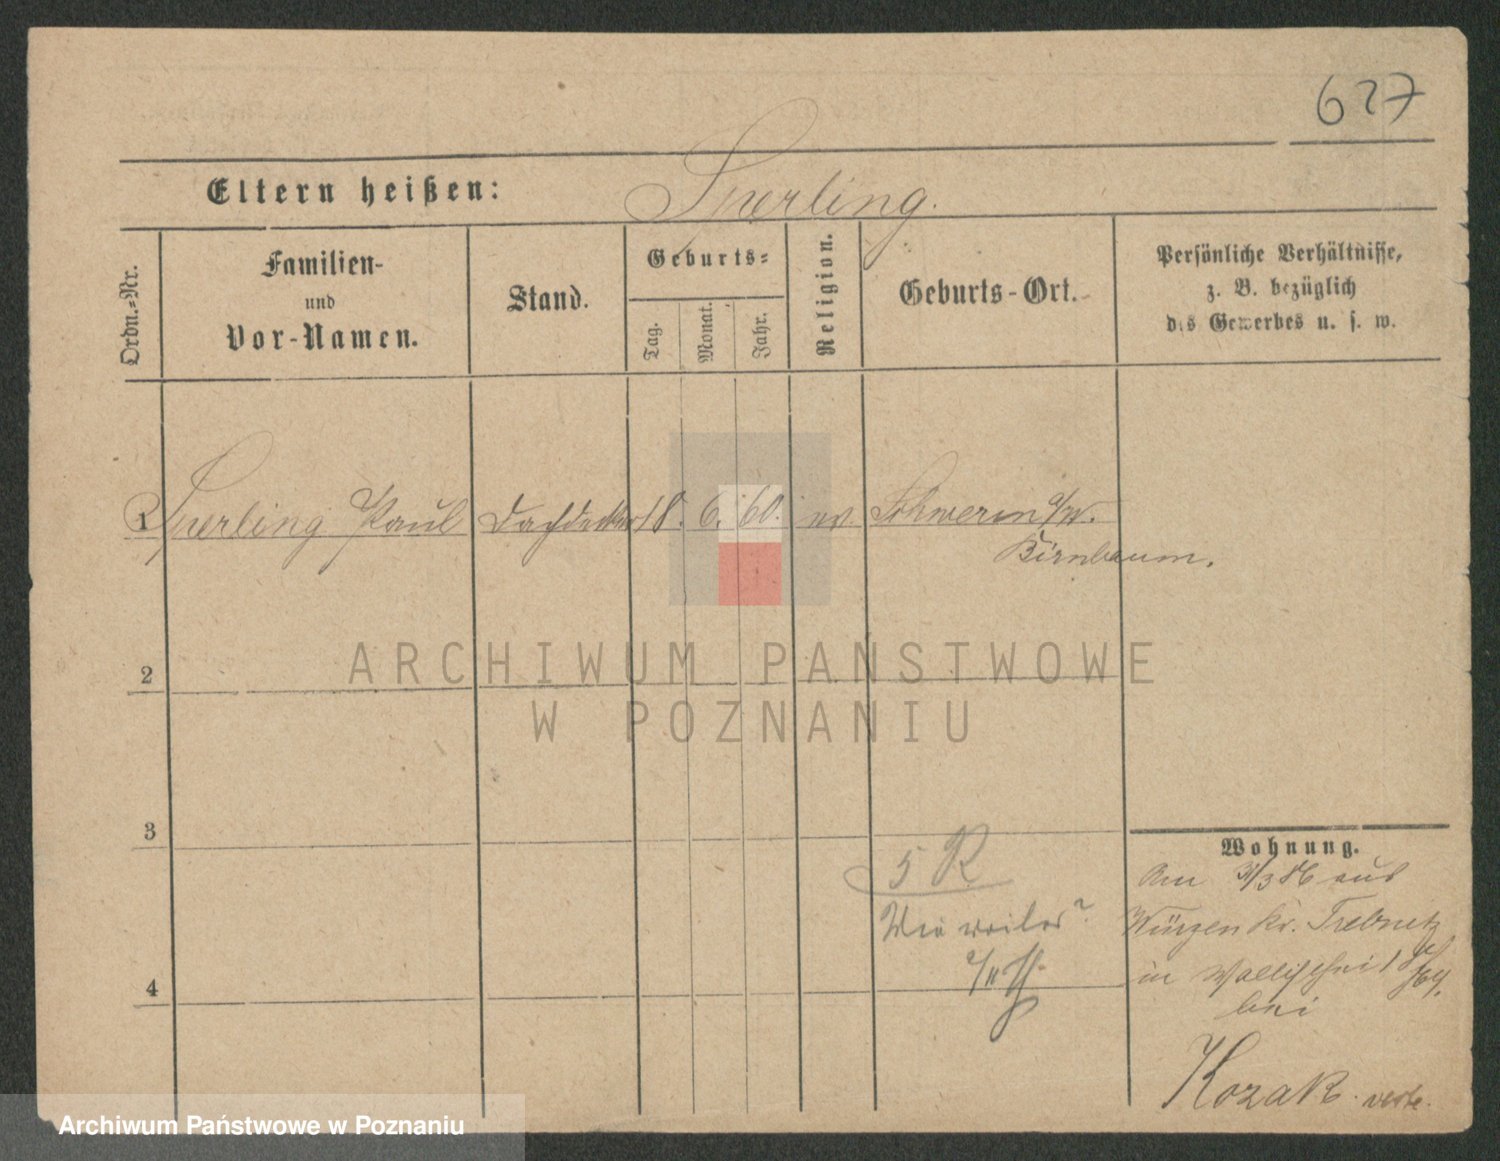 627
Eltern heißen: Sperling.
Ordn.-Nr.
Familien-
und
Vor-Namen.
Stand.
Geburts-
Tag.
Monat.
Jahr.
Religion.
Geburts-Ort.
Persönliche Verhältnisse,
z. B. bezüglich
des Gewerbes u. s. w.
1 Sperling Paul Dachdecker 18. 6. 60. ev. Schwerin a/W.
Birnbaum.
2
ARCHIWUM PAŃSTWOWE
W POZNANIU
3
Wohnung.
5 R
Am 31/3 86 aus
Wo weiler?
Würzen Kr. Trebnitz
in Wallischei 18
4
bei
Kozak
Archiwum Państwowe w Poznaniu